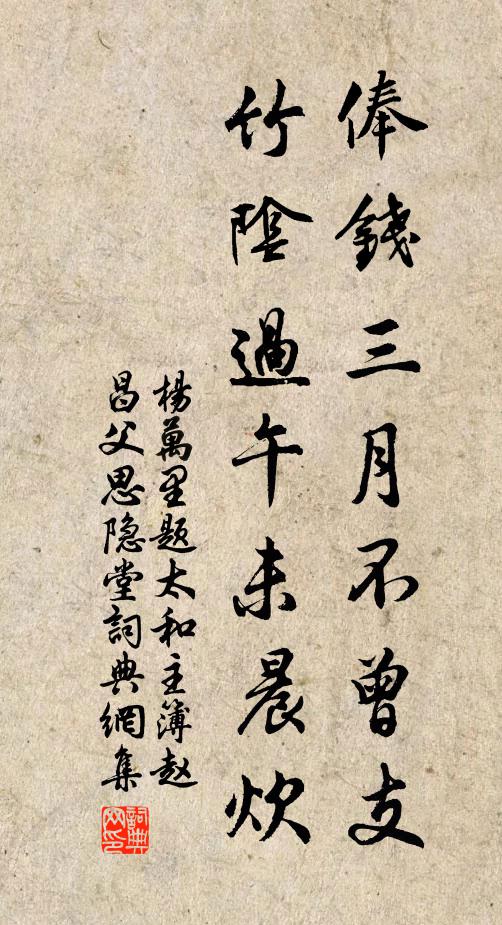 俸錢三月不曾支
竹陰過午未晨炊
楊萬里題太和主簿赵
昌父思隐堂詞典網集
詞典
网印